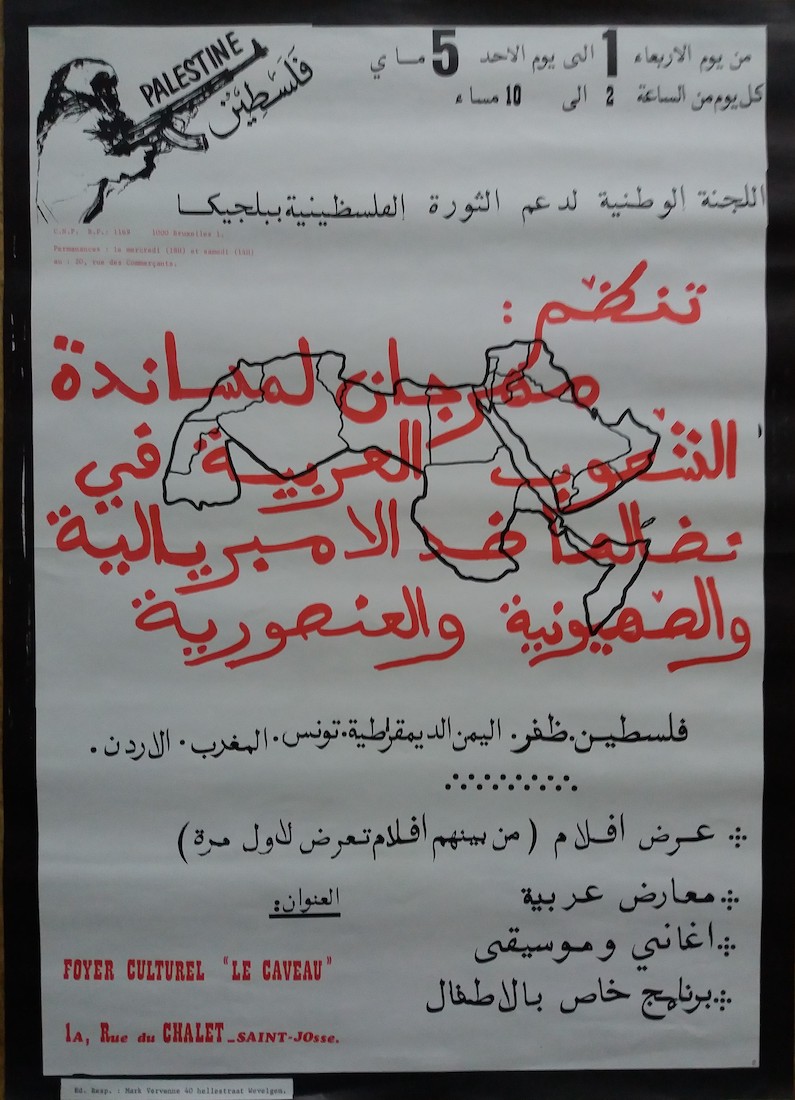 PALESTINE
فَلَسطِين
من يوم الاربعاء 1 الى يوم الاحد 5 ماي
كل يوم من الساعة 2 الى 10 مساء
اللجنة الوطنية لدعم الثورة الفلسطينية ببلجيكا
C.N.P. B.P.: 1169 1000 Bruxelles 1.
Permanences : le mercredi (18H) et samedi (14H)
au : 20, rue des Commerçants.
تنظم :
مهرجان لمساندة
الشعوب العربية في
نضالها ضد الامبريالية
والصهيونية والعنصورية
فلسطين. ظفر. اليمن الديمقراطية. تونس. المغرب. الاردن.
عرض افلام (من بينهم افلام تعرض لاول مرة)
معارض عربية
العنوان:
اغاني وموسيقى
برنامج خاص بالاطفال
FOYER CULTUREL "LE CAVEAU"
1A, Rue du CHALET _ SAINT-JOsse.
Ed. Resp. : Mark Vervenne 40 hellestraat Wevelgem.